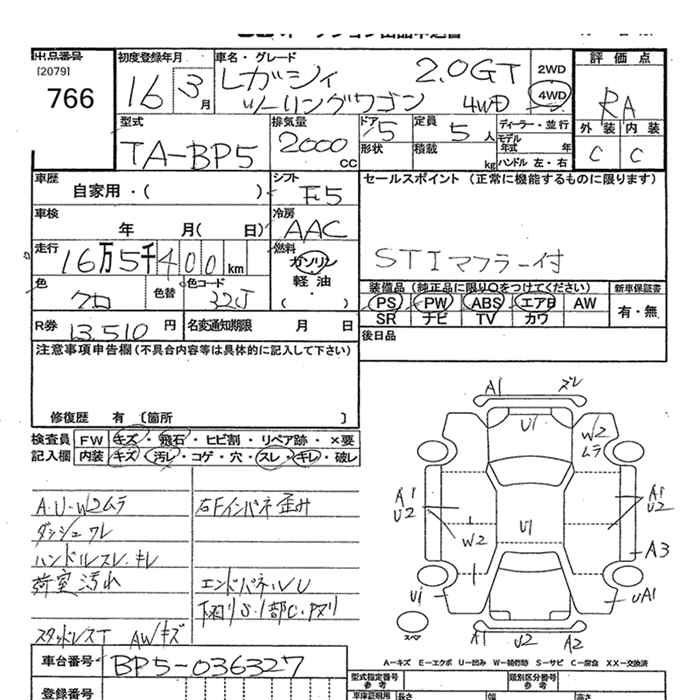 出品番号
[2079]
766
初度登録年月
16 3月
車名・グレード
レガシィ 2.0GT
ツーリングワゴン 4WD
2WD
4WD
評価点
RA
外装 内装
C C
型式
TA-BP5
排気量
2000cc
ドア 5
形状
定員 5人
積載 kg
ディーラー・並行
モデル年式 年
ハンドル 左・右
車歴
自家用・( )
シフト
F5
セールスポイント (正常に機能するものに限ります)
STIマフラー付
車検
年 月( 日)
冷房
AAC
走行
16万5千400km
燃料
ガソリン
軽油
( )
色
クロ
色替
色コード
32J
装備品 (純正品に限り○をつけてください)
PS PW ABS エアB AW
SR ナビ TV カワ
新車保証書
有・無
R券 13,510円
名変通知期限 月 日
後日品
注意事項申告欄(不具合内容等は具体的に記入して下さい)
修復歴 有 〔箇所 〕
検査員記入欄
FW キズ・飛石・ヒビ割・リペア跡・×要
内装 キズ・汚レ・コゲ・穴・スレ・キレ・破レ
A.U.W2ムラ
ダッシュワレ
ハンドルスレ.キレ
荷室汚れ
スタッドレスT AWキズ
右Fインパネ歪み
エンドパネルU
下回りS.1部C.サビ
A1 ズレ
U1
W2
ムラ
A1
U2
W2
U1
A1
U2
A3
U1
UA1
スペア
A1 U2 A2
A-キズ E-エクボ U-凹み W-補修跡 S-サビ C-腐食 XX-交換済
車台番号 BP5-036327
登録番号
型式指定番号
参考
類別区分番号
参考
車庫証明用
長さ 幅 高さ